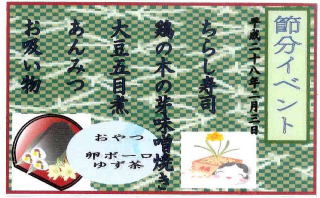 節分イベント
平成二十八年二月三日
ちらし寿司
鶏の木の芽味噌焼き
大豆五目煮
あんみつ
お吸い物
おやつ
卵ボーロ
ゆず茶